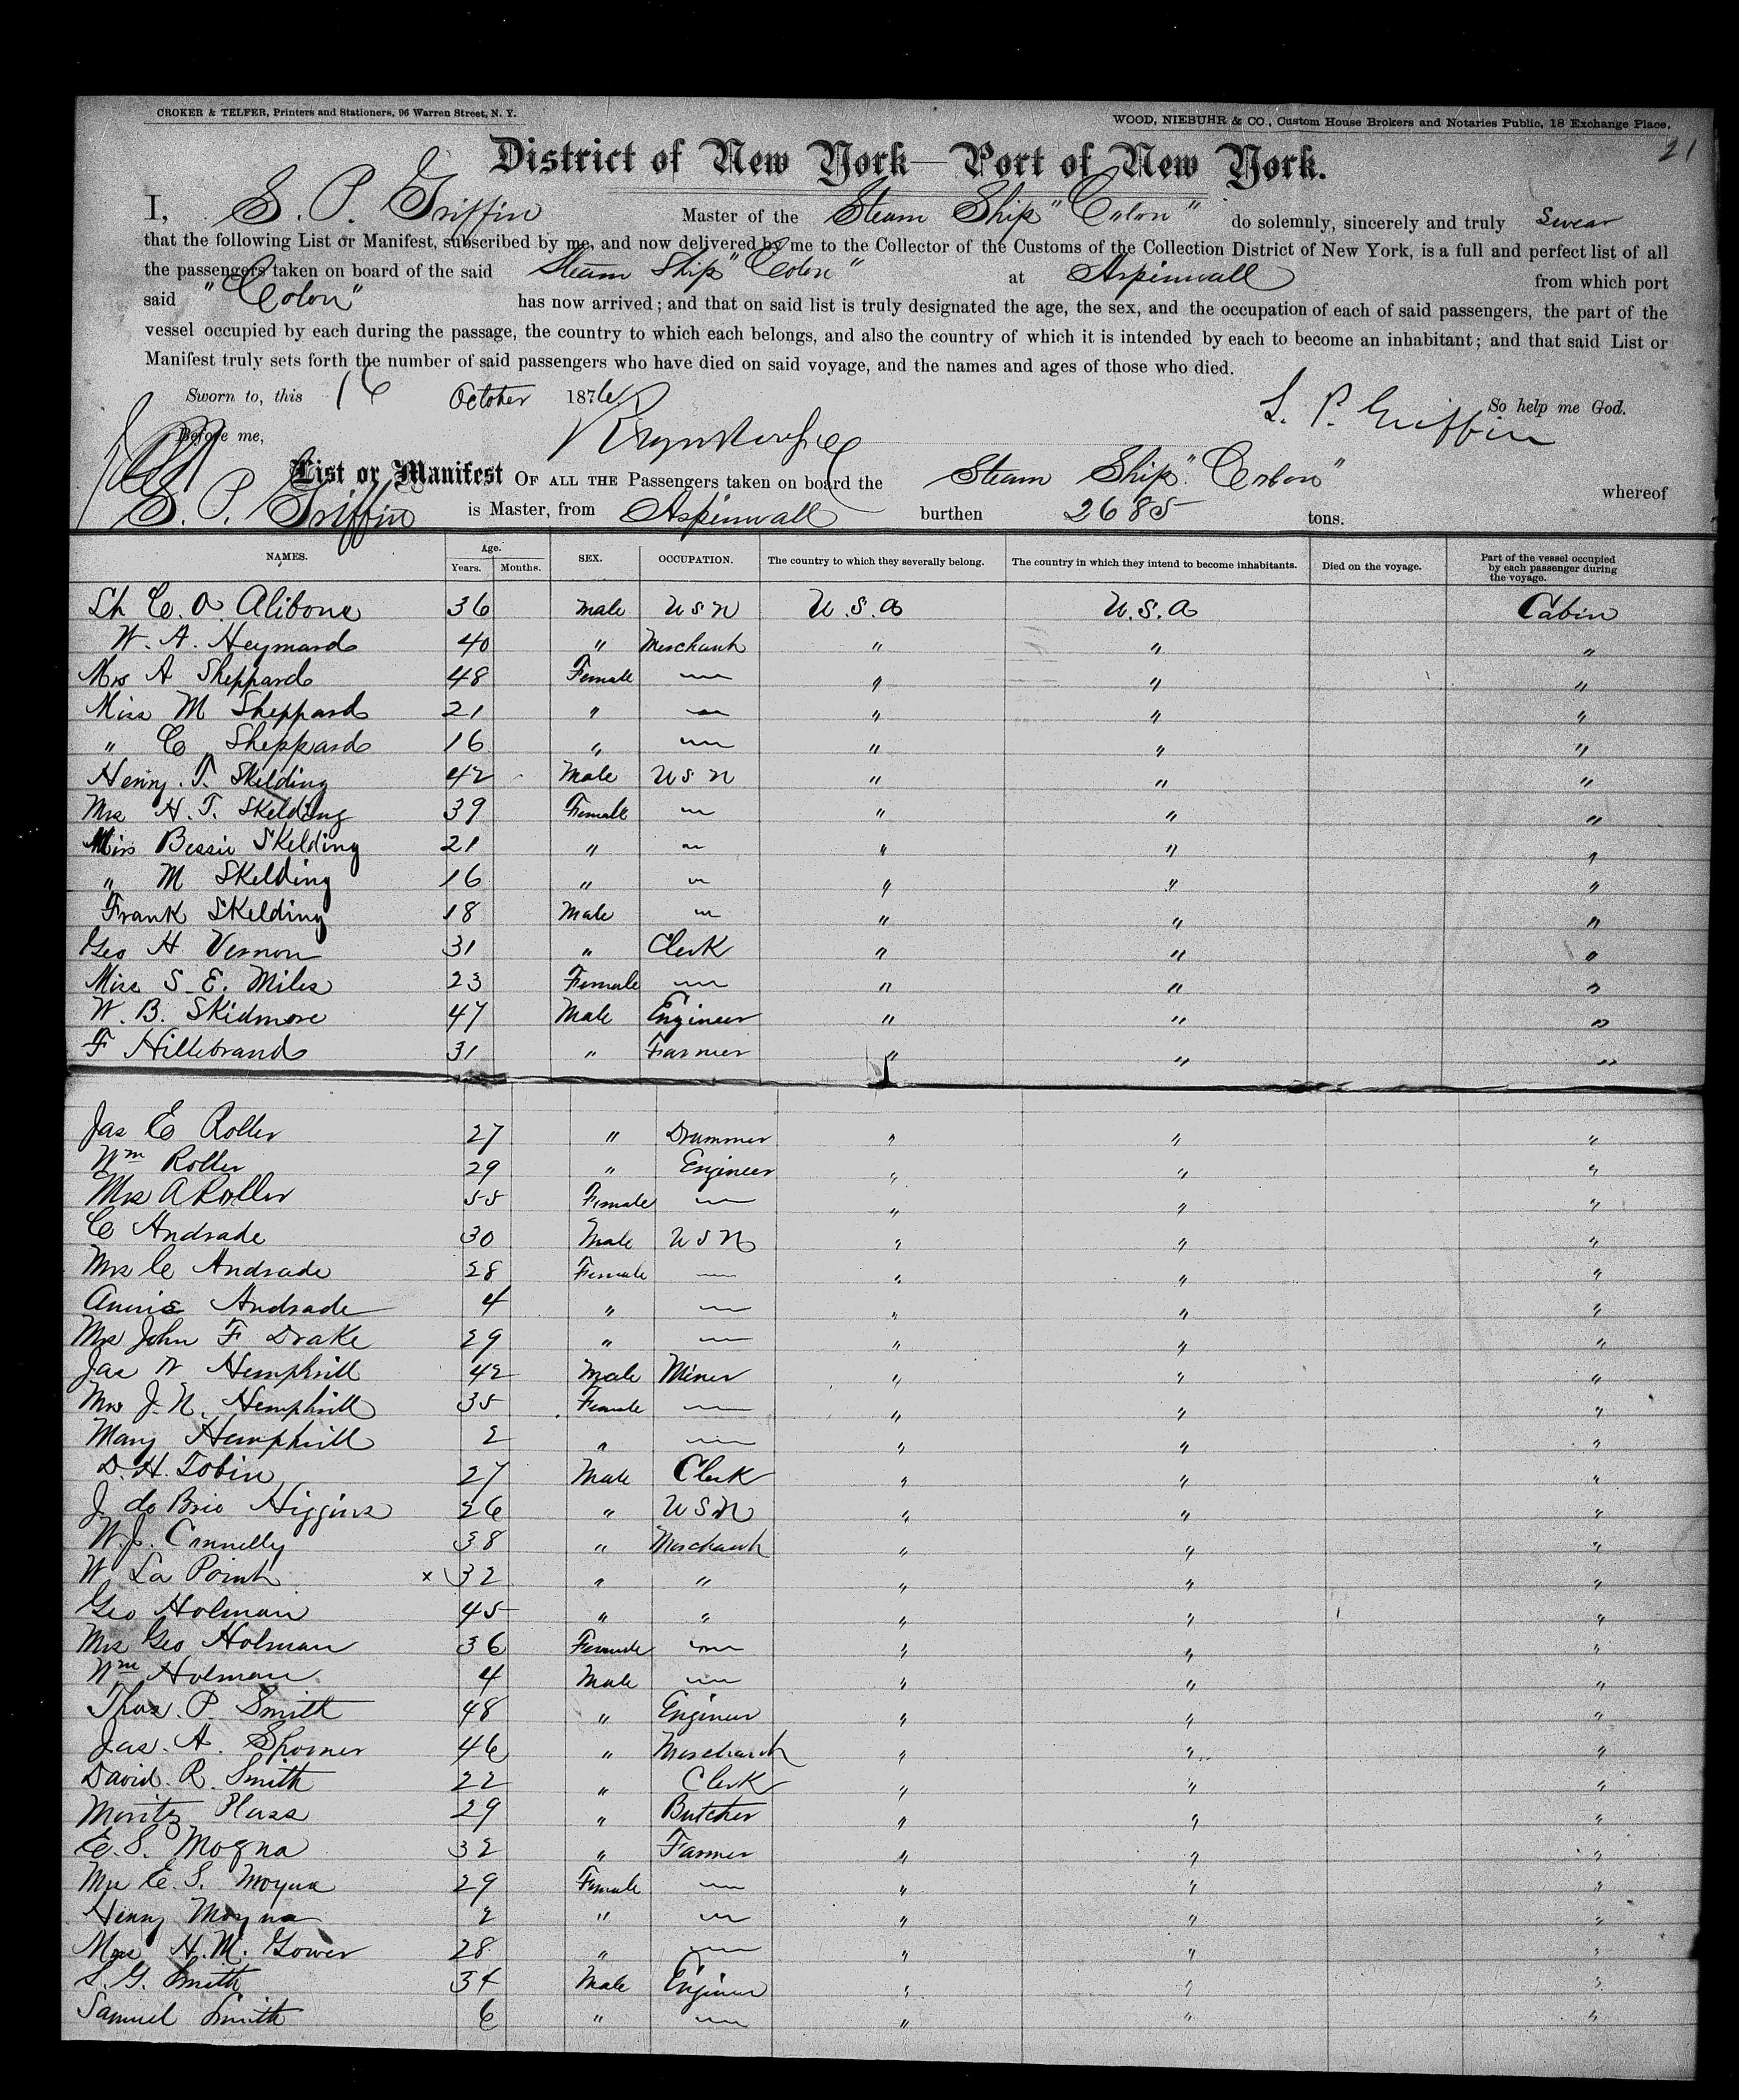 CROKER & TELFER, Printers and Stationers, 96 Warren Street, N. Y.
WOOD, NIEBUHR & CO., Custom House Brokers and Notaries Public, 18 Exchange Place,
21
District of New York—Port of New York.
I, S. P. Griffin Master of the Steam Ship "Colon" do solemnly, sincerely and truly Swear
that the following List or Manifest, subscribed by me, and now delivered by me to the Collector of the Customs of the Collection District of New York, is a full and perfect list of all
the passengers taken on board of the said Steam Ship "Colon" at Aspinwall from which port
said "Colon" has now arrived; and that on said list is truly designated the age, the sex, and the occupation of each of said passengers, the part of the
vessel occupied by each during the passage, the country to which each belongs, and also the country of which it is intended by each to become an inhabitant; and that said List or
Manifest truly sets forth the number of said passengers who have died on said voyage, and the names and ages of those who died.
Sworn to, this 16 October 1876 S. P. Griffin So help me God.
Before me,
List or Manifest OF ALL THE Passengers taken on board the Steam Ship "Colon" whereof
S. P. Griffin is Master, from Aspinwall burthen 2685 tons.
NAMES. Age. Years. Months. SEX. OCCUPATION. The country to which they severally belong. The country in which they intend to become inhabitants. Died on the voyage. Part of the vessel occupied by each passenger during the voyage.
Lt C. O. Alibone 36 Male U S N U.S.a U.S.a Cabin
W. A. Heymard 40 " Merchant " " "
Mrs A Sheppard 48 Female — " " "
Miss M Sheppard 21 " — " " "
" C Sheppard 16 " — " " "
Henry. T. Skelding 42 Male U S N " " "
Mrs H. T. Skelding 39 Female — " " "
Miss Bessie Skelding 21 " — " " "
" M Skelding 16 " — " " "
Frank Skelding 18 Male — " " "
Geo H Vernon 31 " Clerk " " "
Miss S. E. Miles 23 Female — " " "
W. B. Skidmore 47 Male Engineer " " "
F Hillebrand 31 " Farmer " " "
Jas E Roller 27 " Drummer " " "
Wm Roller 29 " Engineer " " "
Mrs A Roller 55 Female — " " "
C Andrade 30 Male U S N " " "
Mrs C Andrade 28 Female — " " "
Annie Andrade 4 " — " " "
Mrs John F Drake 29 " — " " "
Jas N Hemphill 42 Male Miner " " "
Mrs J. N. Hemphill 35 Female — " " "
Mary Hemphill 2 " — " " "
D. H. Tobin 27 Male Clerk " " "
J. de Brie Higgins 26 " U S N " " "
W. J. Connelly 38 " Merchant " " "
W La Point x 32 " " " " "
Geo Holman 45 " " " " "
Mrs Geo Holman 36 Female — " " "
Wm Holman 4 Male — " " "
Thos. P. Smith 48 " Engineer " " "
Jas. A. Spooner 46 " Merchant " " "
David. R. Smith 22 " Clerk " " "
Moritz Plass 29 " Butcher " " "
E. S. Moyna 32 " Farmer " " "
Mrs E. S. Moyna 29 Female — " " "
Henry Moyna 2 " — " " "
Mrs H. M. Gower 28 " — " " "
S. G. Smith 34 Male Engineer " " "
Samuel Smith 6 " — " " "